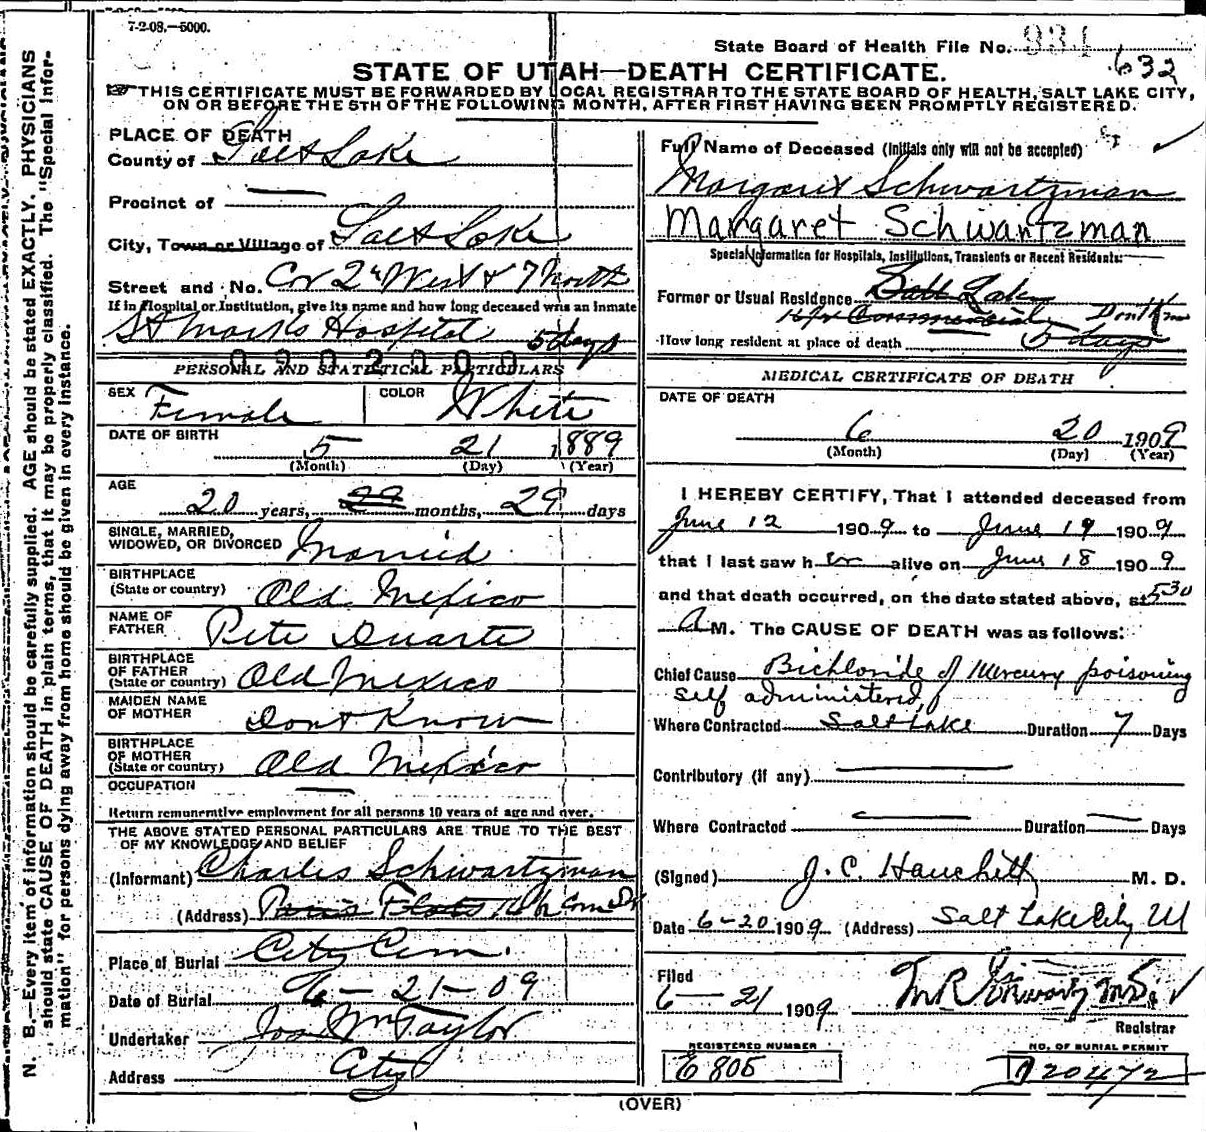 7-2-08.—5000.
State Board of Health File No. 934
632
STATE OF UTAH—DEATH CERTIFICATE.
THIS CERTIFICATE MUST BE FORWARDED BY LOCAL REGISTRAR TO THE STATE BOARD OF HEALTH, SALT LAKE CITY,
ON OR BEFORE THE 5TH OF THE FOLLOWING MONTH, AFTER FIRST HAVING BEEN PROMPTLY REGISTERED.
N. B.—Every item of information should be carefully supplied. AGE should be stated EXACTLY. PHYSICIANS
should state CAUSE OF DEATH in plain terms, that it may be properly classified. The "Special Infor-
mation" for persons dying away from home should be given in every instance.
PLACE OF DEATH
County of Salt Lake
Precinct of —
City, Town or Village of Salt Lake
Street and No. Cor 2d West & 7 North
If in Hospital or Institution, give its name and how long deceased was an inmate
St Marks Hospital 5 days
0202000
PERSONAL AND STATISTICAL PARTICULARS
SEX Female COLOR White
DATE OF BIRTH 5 21 1889
(Month) (Day) (Year)
AGE
20 years, 29 months, 29 days
SINGLE, MARRIED,
WIDOWED, OR DIVORCED Married
BIRTHPLACE
(State or country) Old Mexico
NAME OF
FATHER Pete Duarte
BIRTHPLACE
OF FATHER
(State or country) Old Mexico
MAIDEN NAME
OF MOTHER Dont Know
BIRTHPLACE
OF MOTHER
(State or country) Old Mexico
OCCUPATION —
Return remunerative employment for all persons 10 years of age and over.
THE ABOVE STATED PERSONAL PARTICULARS ARE TRUE TO THE BEST
OF MY KNOWLEDGE AND BELIEF
(Informant) Charles Schwartzman
(Address) Paris Flats
Place of Burial City Cem.
Date of Burial 6-21-09
Undertaker Jos Wm Taylor
Address City
Full Name of Deceased (Initials only will not be accepted)
Margaret Schwartzman
Margaret Schwartzman
Special Information for Hospitals, Institutions, Transients or Recent Residents:
Former or Usual Residence Salt Lake
Commercial Dont Know
How long resident at place of death 5 days
MEDICAL CERTIFICATE OF DEATH
DATE OF DEATH
6 20 1909
(Month) (Day) (Year)
I HEREBY CERTIFY, That I attended deceased from
June 12 1909 to June 19 1909
that I last saw her alive on June 18 1909
and that death occurred, on the date stated above, at 5 30
A M. The CAUSE OF DEATH was as follows:
Chief Cause Bichloride of Mercury poisoning
self administered
Where Contracted Salt Lake Duration 7 Days
Contributory (if any) —
Where Contracted — Duration — Days
(Signed) J. C. M. D.
Date 6-20 1909 (Address) Salt Lake City Ut
Filed
6-21 1909
Registrar
REGISTERED NUMBER
E 805
NO. OF BURIAL PERMIT
20472
(OVER)